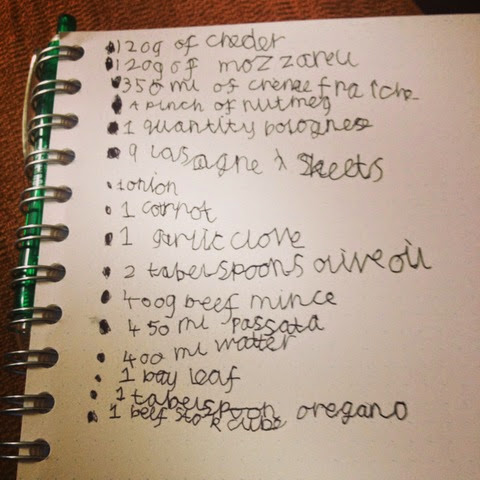 120g of cheder
120g of mozzarell
350 ml of creme fraiche
A pinch of nutmeg
1 quantity bolognese
9 lasagne sheets
1 onion
1 carrot
1 garlic clove
2 tabelspoons olive oil
400g beef mince
450 ml passata
400 ml watter
1 bay leaf
1 tabelspoon oregano
1 beef stock cube